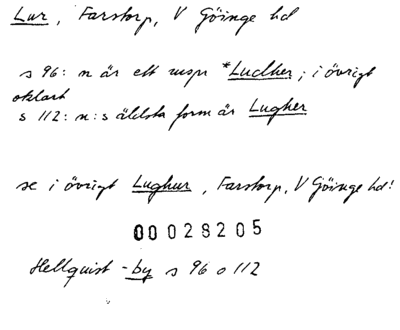 Lur, Farstorp, V Göinge hd
s 96: n är ett uspr *Ludher; i övrigt
oklart
s 112: n:s äldsta form är Lugher
se i övrigt Lughur, Farstorp, V Göinge hd!
00028205
Hellquist -by s 96 o 112